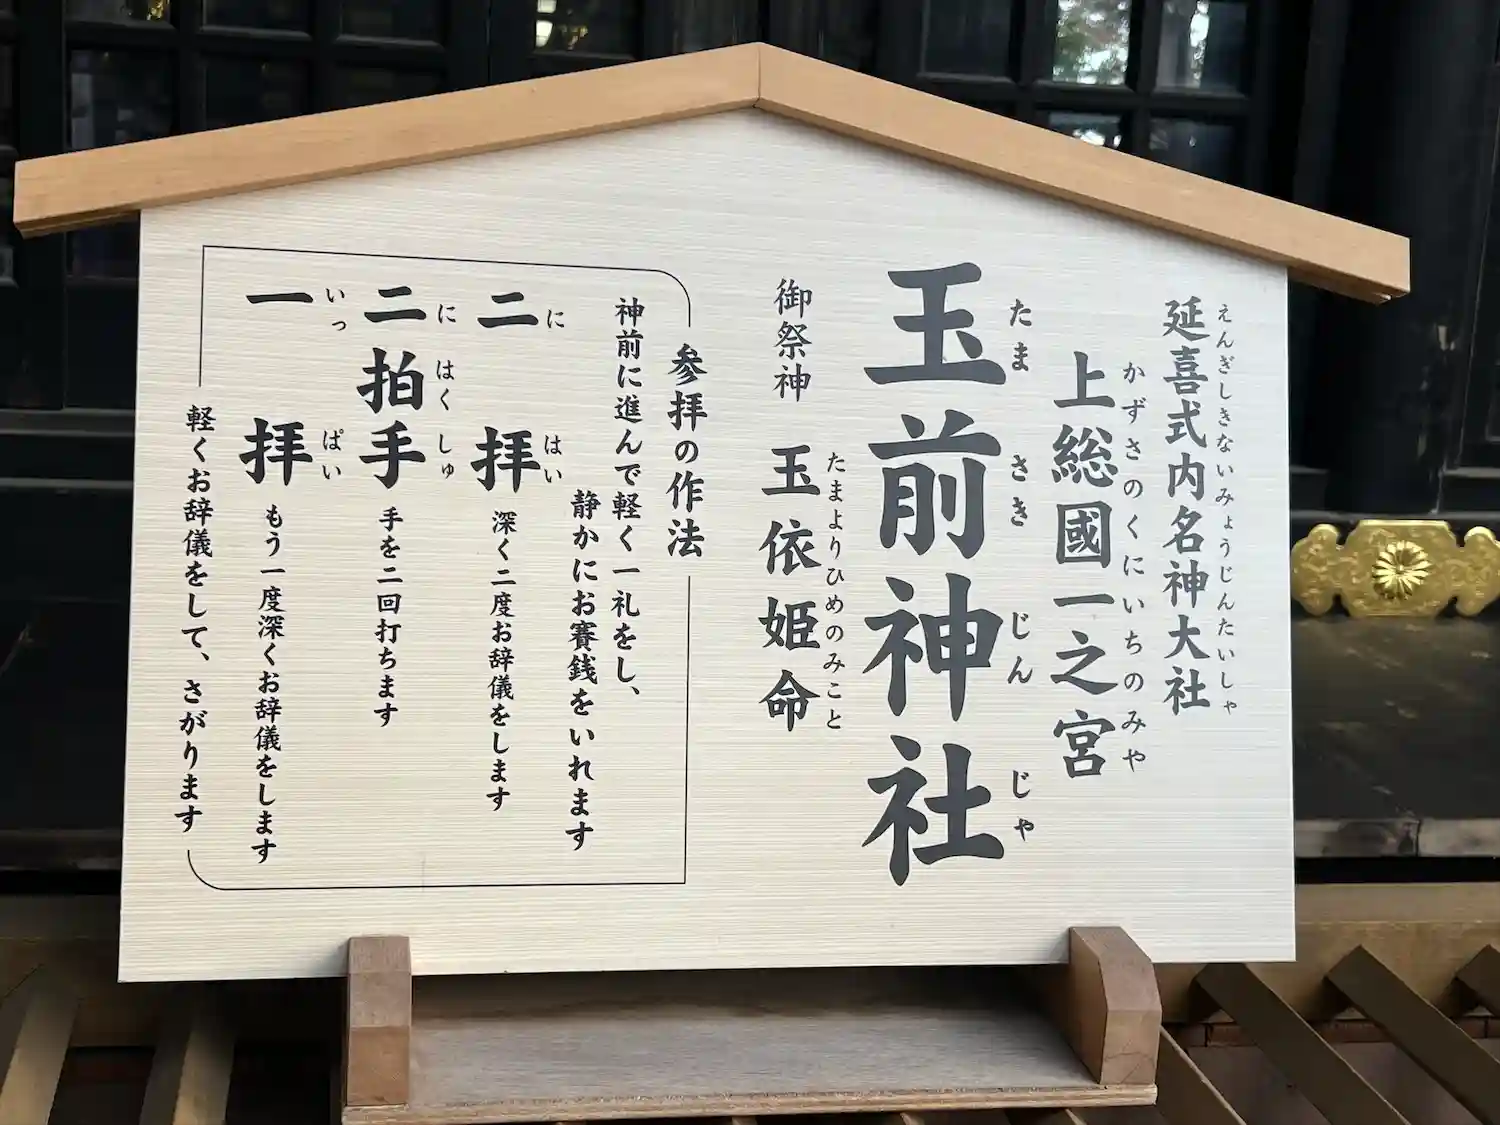 延喜式内名神大社
えんぎしきないみょうじんたいしゃ
上総國一之宮
かずさのくにいちのみや
玉前神社
たまさきじんじゃ
御祭神 玉依姫命
たまよりひめのみこと
参拝の作法
神前に進んで軽く一礼をし、
静かにお賽銭をいれます
二拝 深く二度お辞儀をします
にはい
二拍手 手を二回打ちます
にはくしゅ
一拝 もう一度深くお辞儀をします
いっぱい
軽くお辞儀をして、さがります